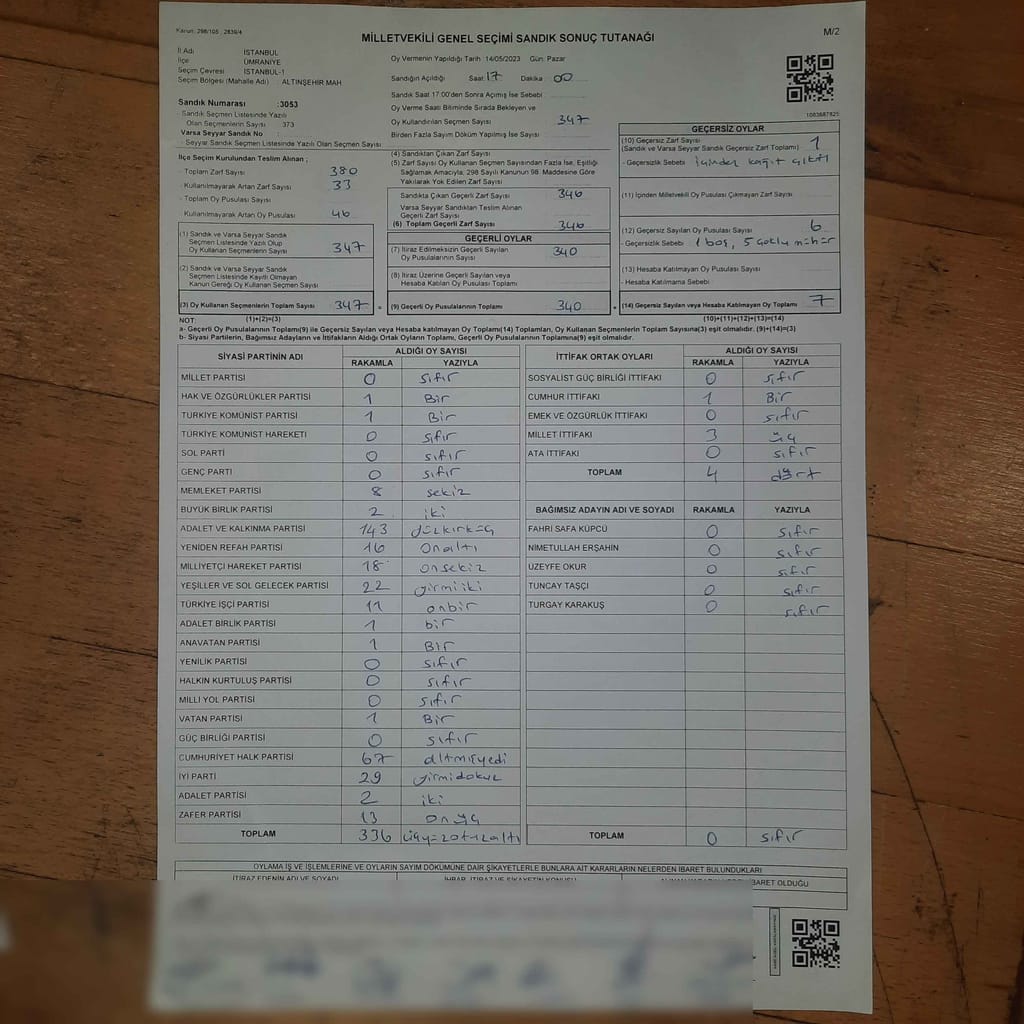 Kanun: 298/105 , 2839/4
M/2
MİLLETVEKİLİ GENEL SEÇİMİ SANDIK SONUÇ TUTANAĞI
İl Adı İSTANBUL
İlçe ÜMRANİYE
Seçim Çevresi İSTANBUL-1
Seçim Bölgesi (Mahalle Adı) : ALTINŞEHİR MAH
Sandık Numarası :3053
Sandık Seçmen Listesinde Yazılı
Olan Seçmenlerin Sayısı : 373
Varsa Seyyar Sandık No :
Seyyar Sandık Seçmen Listesinde Yazılı Olan Seçmen Sayısı
İlçe Seçim Kurulundan Teslim Alınan ;
Toplam Zarf Sayısı 380
Kullanılmayarak Artan Zarf Sayısı 33
Toplam Oy Pusulası Sayısı
Kullanılmayarak Artan Oy Pusulası 46
(1) Sandık ve Varsa Seyyar Sandık
Seçmen Listesinde Yazılı Olup
Oy Kullanan Seçmenlerin Sayısı 347
(2) Sandık ve Varsa Seyyar Sandık
Seçmen Listesinde Kayıtlı Olmayan
Kanun Gereği Oy Kullanan Seçmen Sayısı
(3) Oy Kullanan Seçmenlerin Toplam Sayısı 347
Oy Vermenin Yapıldığı Tarih 14/05/2023 Gün: Pazar
Sandığın Açıldığı Saat 17 Dakika 00
Sandık Saat 17.00'den Sonra Açılmış İse Sebebi
Oy Verme Saati Bitiminde Sırada Bekleyen ve
Oy Kullandırılan Seçmen Sayısı 347
Birden Fazla Sayım Döküm Yapılmış İse Sayısı
(4) Sandıktan Çıkan Zarf Sayısı
(5) Zarf Sayısı Oy Kullanan Seçmen Sayısından Fazla İse, Eşitliği
Sağlamak Amacıyla, 298 Sayılı Kanunun 98. Maddesine Göre
Yakılarak Yok Edilen Zarf Sayısı
Sandıkta Çıkan Geçerli Zarf Sayısı 346
Varsa Seyyar Sandıktan Teslim Alınan
Geçerli Zarf Sayısı
(6) Toplam Geçerli Zarf Sayısı 346
GEÇERLİ OYLAR
(7) İtiraz Edilmeksizin Geçerli Sayılan
Oy Pusulasının Sayısı 340
(8) İtiraz Üzerine Geçerli Sayılan veya
Hesaba Katılan Oy Pusulası Toplamı
(9) Geçerli Oy Pusulalarının Toplamı 340
1083687825
GEÇERSİZ OYLAR
(10) Geçersiz Zarf Sayısı 1
(Sandık ve Varsa Seyyar Sandık Geçersiz Zarf Toplamı)
- Geçersizlik Sebebi içinden kağıt çıktı
(11) İçinden Milletvekili Oy Pusulası Çıkmayan Zarf Sayısı
(12) Geçersiz Sayılan Oy Pusulası Sayısı 6
- Geçersizlik Sebebi 1 boş, 5 çoklu mühür
(13) Hesaba Katılmayan Oy Pusulası Sayısı
- Hesaba Katılmama Sebebi
(14) Geçersiz Sayılan veya Hesaba Katılmayan Oy Toplamı 7
NOT: (1)+(2)=(3) (10)+(11)+(12)+(13)=(14)
a- Geçerli Oy Pusulalarının Toplamı(9) ile Geçersiz Sayılan veya Hesaba katılmayan Oy Toplamı(14) Toplamları, Oy Kullanan Seçmenlerin Toplam Sayısına(3) eşit olmalıdır. (9)+(14)=(3)
b- Siyasi Partilerin, Bağımsız Adayların ve İttifakların Aldığı Ortak Oyların Toplamı, Geçerli Oy Pusulalarının Toplamına(9) eşit olmalıdır.
SİYASİ PARTİNİN ADI ALDIĞI OY SAYISI
RAKAMLA YAZIYLA
MİLLET PARTİSİ 0 sıfır
HAK VE ÖZGÜRLÜKLER PARTİSİ 1 Bir
TÜRKİYE KOMÜNİST PARTİSİ 1 Bir
TÜRKİYE KOMÜNİST HAREKETİ 0 sıfır
SOL PARTİ 0 sıfır
GENÇ PARTİ 0 sıfır
MEMLEKET PARTİSİ 8 sekiz
BÜYÜK BİRLİK PARTİSİ 2 iki
ADALET VE KALKINMA PARTİSİ 143 yüzkırküç
YENİDEN REFAH PARTİSİ 16 onaltı
MİLLİYETÇİ HAREKET PARTİSİ 18 onsekiz
YEŞİLLER VE SOL GELECEK PARTİSİ 22 yirmiiki
TÜRKİYE İŞÇİ PARTİSİ 11 onbir
ADALET BİRLİK PARTİSİ 1 bir
ANAVATAN PARTİSİ 1 Bir
YENİLİK PARTİSİ 0 sıfır
HALKIN KURTULUŞ PARTİSİ 0 sıfır
MİLLİ YOL PARTİSİ 0 sıfır
VATAN PARTİSİ 1 Bir
GÜÇ BİRLİĞİ PARTİSİ 0 sıfır
CUMHURİYET HALK PARTİSİ 67 altmışyedi
İYİ PARTİ 29 yirmidokuz
ADALET PARTİSİ 2 iki
ZAFER PARTİSİ 13 onüç
TOPLAM 336 üçyüzotuzaltı
İTTİFAK ORTAK OYLARI ALDIĞI OY SAYISI
RAKAMLA YAZIYLA
SOSYALİST GÜÇ BİRLİĞİ İTTİFAKI 0 sıfır
CUMHUR İTTİFAKI 1 Bir
EMEK VE ÖZGÜRLÜK İTTİFAKI 0 sıfır
MİLLET İTTİFAKI 3 üç
ATA İTTİFAKI 0 sıfır
TOPLAM 4 dört
BAĞIMSIZ ADAYIN ADI VE SOYADI RAKAMLA YAZIYLA
FAHRİ SAFA KÜPCÜ 0 sıfır
NİMETULLAH ERŞAHİN 0 sıfır
ÜZEYFE OKUR 0 sıfır
TUNCAY TAŞÇI 0 sıfır
TURGAY KARAKUŞ 0 sıfır
TOPLAM 0 sıfır
OYLAMA İŞ VE İŞLEMLERİNE VE OYLARIN SAYIM DÖKÜMÜNE DAİR ŞİKAYETLERLE BUNLARA AİT KARARLARIN NELERDEN İBARET BULUNDUKLARI
İTİRAZ EDENİN ADI VE SOYADI İHBAR, İTİRAZ VE ŞİKAYETİN KONUSU